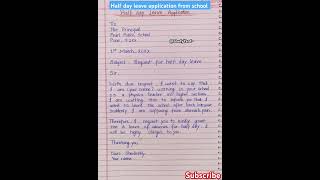 Half day leave application from school
Half day Leave Application
To
The Principal
Pearl Public School
Pune,
1st March,
Subject - Request for half day leave
Sir,
With due respect, I want to say that
I am your working in your school
as a physics teacher in higher section.
I am writing this to inform you that I
want to leave the school after half because
suddenly I am suffering from stomach pain.
Therefore, I request you to kindly grant
me a leave of absence for half day. I
will be highly obliged to you.
Thanking you
Yours
Your name
Subscribe